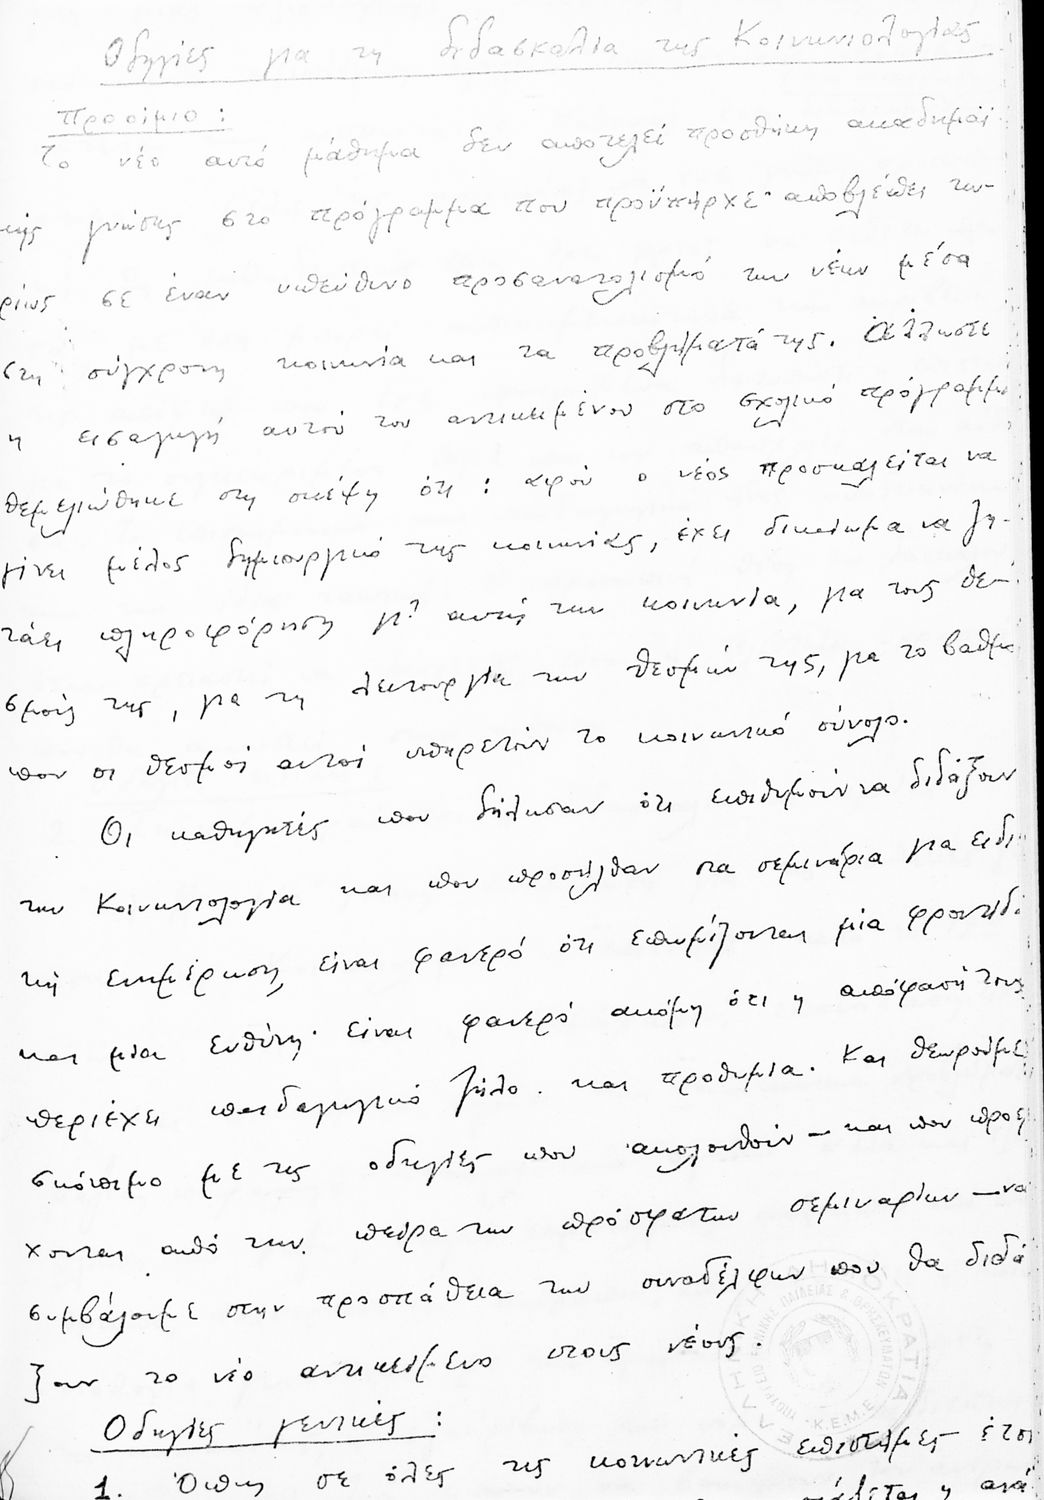 Οδηγίες για τη διδασκαλία της Κοινωνιολογίας
Προοίμιο :
Το νέο αυτό μάθημα δεν αποτελεί προσθήκη ακαδημαϊ-
κής γνώσης στο πρόγραμμα που προϋπήρχε· αποβλέπει κυ-
ρίως σε έναν υπεύθυνο προσανατολισμό των νέων μέσα
στη σύγχρονη κοινωνία και τα προβλήματά της. Άλλωστε
η εισαγωγή αυτού του αντικειμένου στο σχολικό πρόγραμμα
θεμελιώθηκε στη σκέψη ότι : αφού ο νέος προσκαλείται να
γίνει μέλος δημιουργικό της κοινωνίας, έχει δικαίωμα να ζη-
τάει πληροφόρηση γι' αυτή την κοινωνία, για τους θε-
σμούς της, για τη λειτουργία των θεσμών της, για το βαθμό
που οι θεσμοί αυτοί υπηρετούν το κοινωνικό σύνολο.
Οι καθηγητές που δήλωσαν ότι επιθυμούν να διδάξουν
την Κοινωνιολογία και που προσήλθαν στα σεμινάρια για ειδι-
κή ενημέρωση, είναι φανερό ότι επωμίζονται μία φροντίδα
και μια ευθύνη· είναι φανερό ακόμη ότι η απόφασή τους
περιέχει παιδαγωγικό ζήλο και προθυμία. Και θεωρούμε
σκόπιμο με τις οδηγίες που ακολουθούν – και που προέρ
χονται από την πείρα των πρόσφατων σεμιναρίων – να
συμβάλουμε στην προσπάθεια των συναδέλφων που θα διδά
ξουν το νέο αντικείμενο στους νέους.
ΕΛΛΗΝΙΚΗ ΔΗΜΟΚΡΑΤΙΑ
Κ.Ε.Μ.Ε.
Οδηγίες γενικές :
1. Όπως σε όλες τις κοινωνικές επιστήμες έτσι